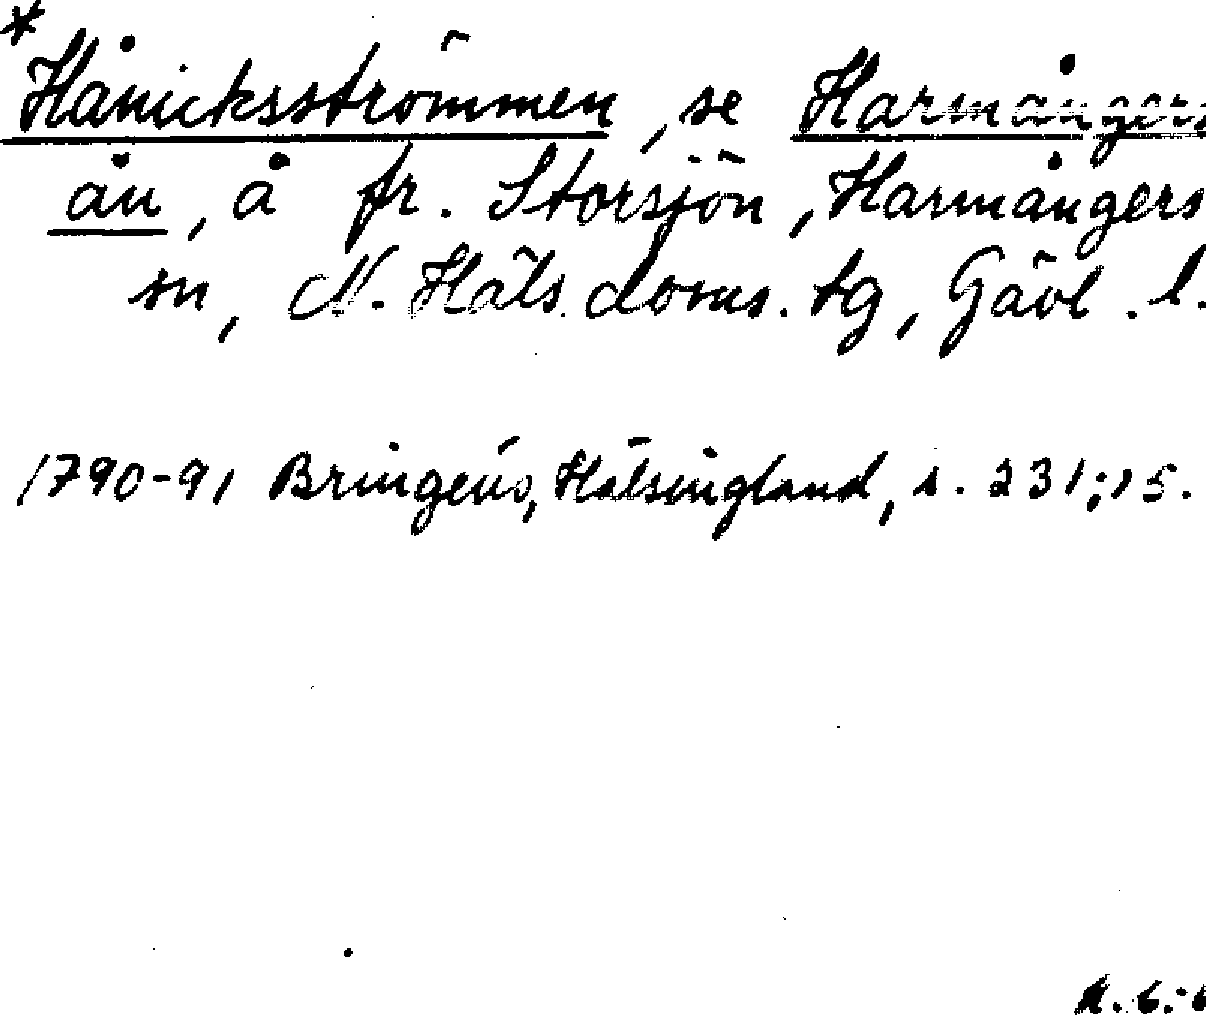 *
Hånicksströmmen, se Harmångers
ån, å fr. Storsjön, Harmångers
sn, N. Häls. doms. tg, Gävl. l.
1790-91 Bringéus, Hälsingland, s. 231; 15.